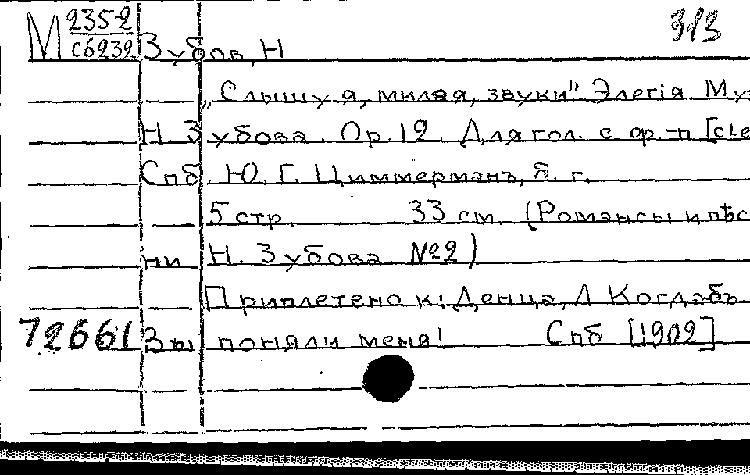 М 2352
сб232
313
Зубов, Н
„Слышу я, милая, звуки" Элегія Му
Н. Зубова. Ор. 12. Для гол. с ф.-п [сле
Спб. Ю. Г. Циммерманъ, б. г.
5 стр. 33 см. (Романсы и пѣс
ни Н. Зубова №22)
Приплетено к: Денца, Л Когдабъ
72661 Вы поняли меня! Спб [1902]